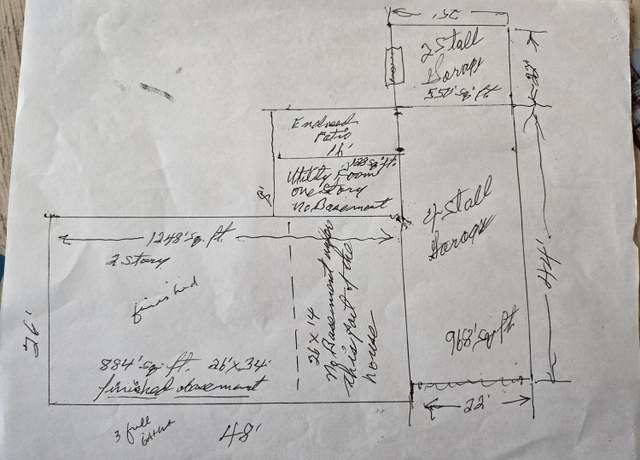 25'
2 Stall
Garage
550' sq. ft
22'
Enclosed
Patio
16'
128 sq. ft.
Utility Room
one Story
No Basement
8'
4 Stall
Garage
44'
1248' sq. ft.
2 Story
finished
26'
26 x 14
No Basement under
this part of the
house
884' sq. ft. 26' x 34'
finished basement
968' sq. ft.
22'
3 full
48'